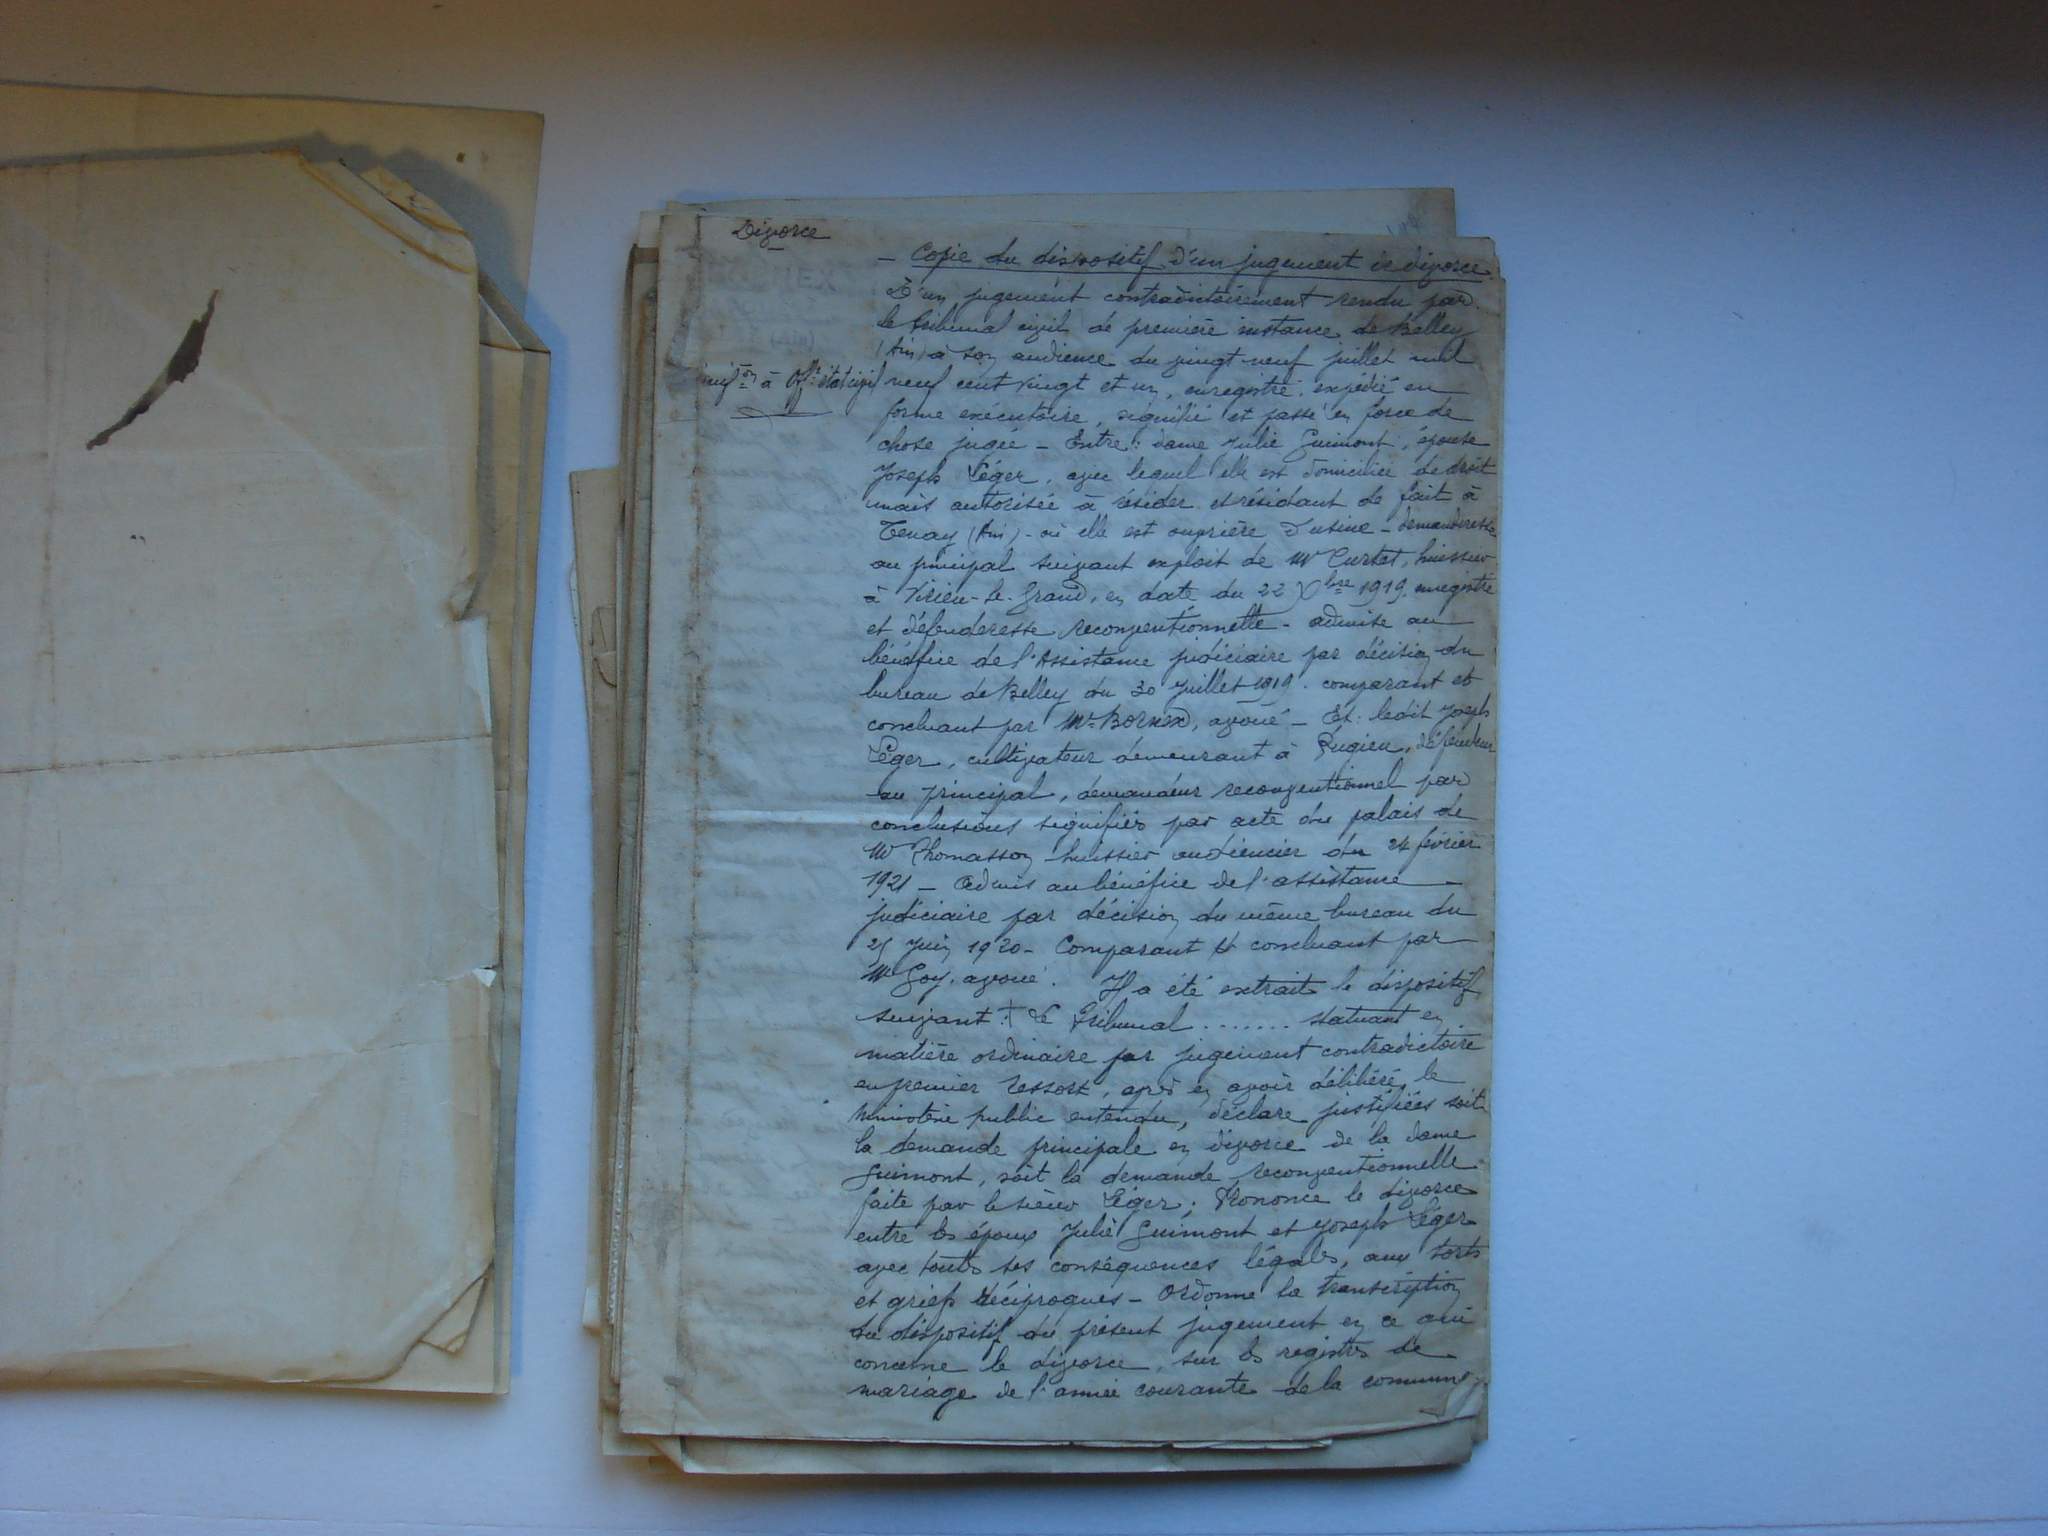 Divorce
- Copie du dispositif d'un jugement de divorce
D'un jugement contradictoirement rendu par
le tribunal civil de première instance de Belley
(Ain) à son audience du vingt neuf juillet mil
à Off. état civil
neuf cent vingt et un, enregistré, expédié en
forme exécutoire, signifié et passé en force de
chose jugée - Entre : dame Julie Guimont, épouse
Joseph Léger, avec lequel elle est domiciliée de droit
mais autorisée à résider et résidant de fait à
Tenay (Ain) - où elle est ouvrière d'usine - demanderesse
au principal suivant exploit de Me Curtet, huissier
à Virieu-le-Grand, en date du 22 Xbre 1919, enregistré
et défenderesse reconventionnelle - admise au
bénéfice de l'Assistance judiciaire par décision du
bureau de Belley du 30 Juillet 1919. comparant et
concluant par Me Bornex, avoué - Et : ledit Joseph
Léger, cultivateur demeurant à Pugieu, défendeur
au principal, demandeur reconventionnel par
conclusions signifiées par acte du palais de
Me Thomasson huissier audiencier du 24 février
1921 - Admis au bénéfice de l'assistance
judiciaire par décision du même bureau du
25 Juin 1920 - Comparant et concluant par
Me Goy, avoué. Il a été extrait le dispositif
suivant : Le Tribunal ....... statuant en
matière ordinaire par jugement contradictoire
en premier ressort, après en avoir délibéré, le
Ministère public entendu, déclare justifiées soit
la demande principale en divorce de la dame
Guimont, soit la demande reconventionnelle
faite par le sieur Léger ; Prononce le divorce
entre les époux Julie Guimont et Joseph Léger
avec toutes ses conséquences légales, aux torts
et griefs réciproques - Ordonne la transcription
du dispositif du présent jugement en ce qui
concerne le divorce, sur les registres de
mariage de l'année courante de la commune